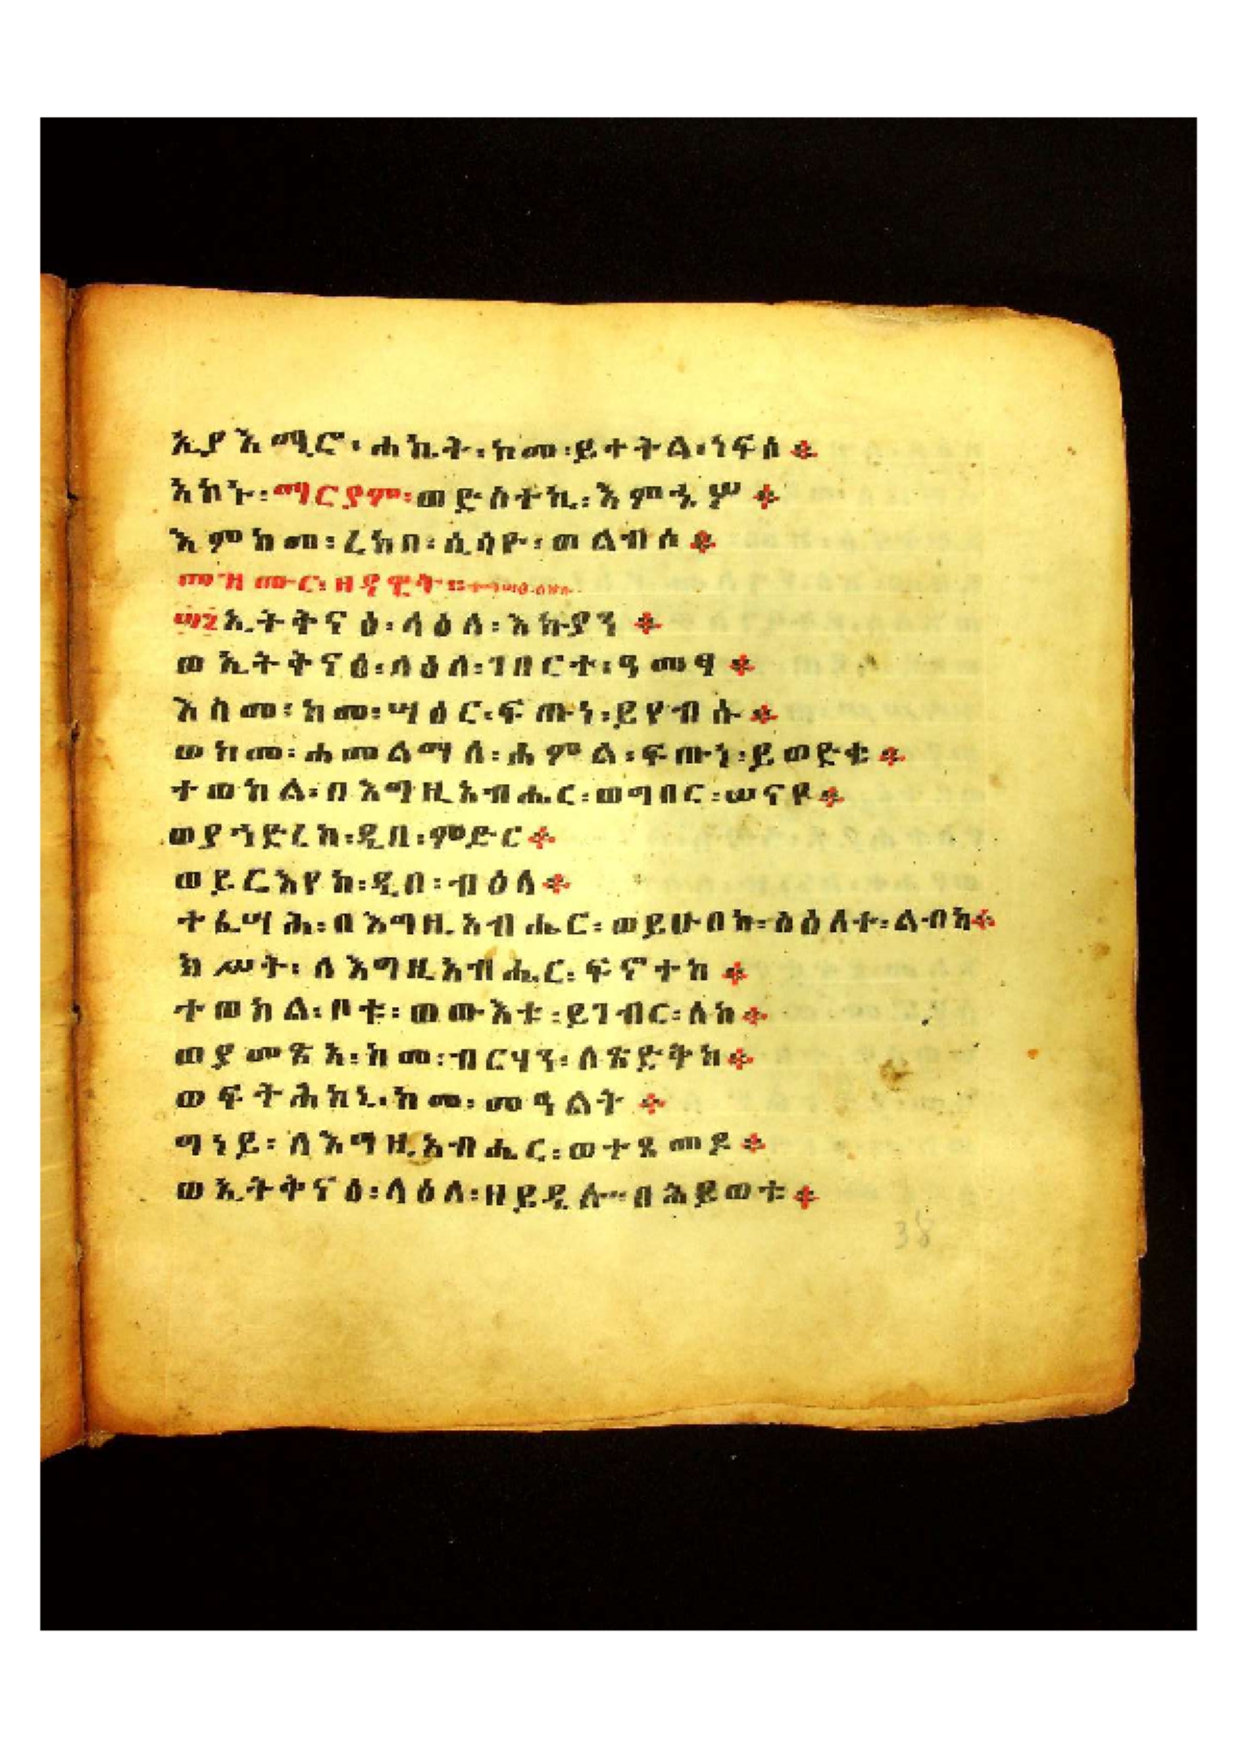 ኢያእሚሮ፡ሐኪት፡ከመ፡ይተትል፡ነፍሰ፨
አኮኑ፡ማርያም፡ወድስተኪ፡እምኔሃ፨
እምከመ፡ረከበ፡ሲሳዮ፡ወልብሰ፨
መዝሙር፡ዘዳዊት፡
፴፮ኢትቅናዕ፡ላዕለ፡እኩያን፨
ወኢትቅናዕ፡ላዕለ፡ገበርተ፡ዓመፃ፨
እስመ፡ከመ፡ሣዕር፡ፍጡነ፡ይየብሱ፨
ወከመ፡ሐመልማለ፡ሐምል፡ፍጡነ፡ይወድቁ፨
ተወከል፡በእግዚአብሔር፡ወግበር፡ሠናየ፨
ወያኀድረከ፡ዲበ፡ምድር፨
ወይርእየከ፡ዲበ፡ብዕለ፨
ተፈሣሕ፡በእግዚአብሔር፡ወይሁበከ፡ስዕለተ፡ልብከ፨
ክሥት፡ለእግዚአብሔር፡ፍኖተከ፨
ተወከል፡ቦቱ፡ወውእቱ፡ይገብር፡ለከ፨
ወያመጽእ፡ከመ፡ብርሃን፡ለጽድቅከ፨
ወፍትሕከኒ፡ከመ፡መዓልት፨
ግነይ፡ለእግዚአብሔር፡ወተፀመዶ፨
ወኢትቅናዕ፡ላዕለ፡ዘይዴሎ፡በሕይወቱ፨
38